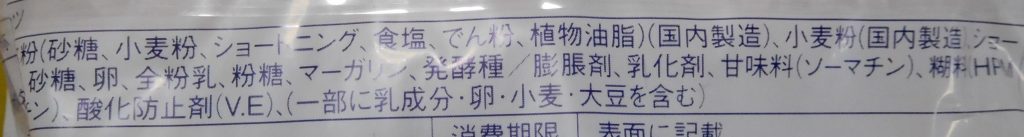 粉(砂糖、小麦粉、ショートニング、食塩、でん粉、植物油脂)(国内製造)、小麦粉(国内製造)ショー
砂糖、卵、全粉乳、粉糖、マーガリン、発酵種／膨脹剤、乳化剤、甘味料(ソーマチン)、糊料(HPM
ン)、酸化防止剤(V.E)、(一部に乳成分・卵・小麦・大豆を含む)
消費期限 表面に記載